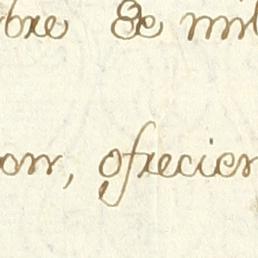 bre de mil
on, ofrecien